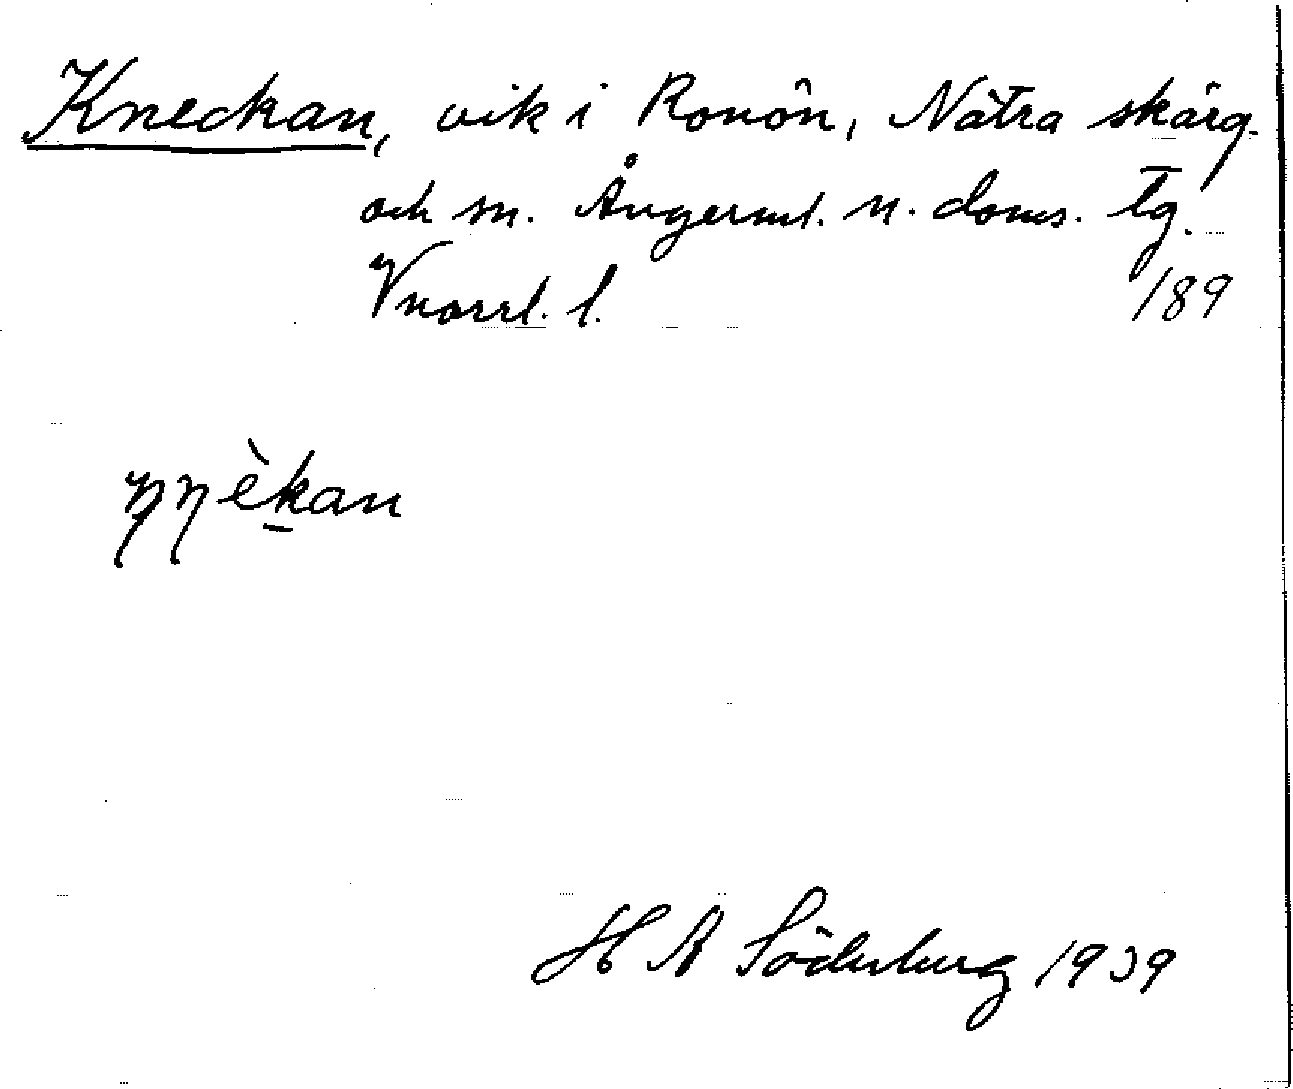 Kneckan, vik i Ronön, Nätra skärg.
och sn. Ångerml. n. doms. tg.
Vnorrl. l. 189
ŋŋèkan
H A Söderberg 1939